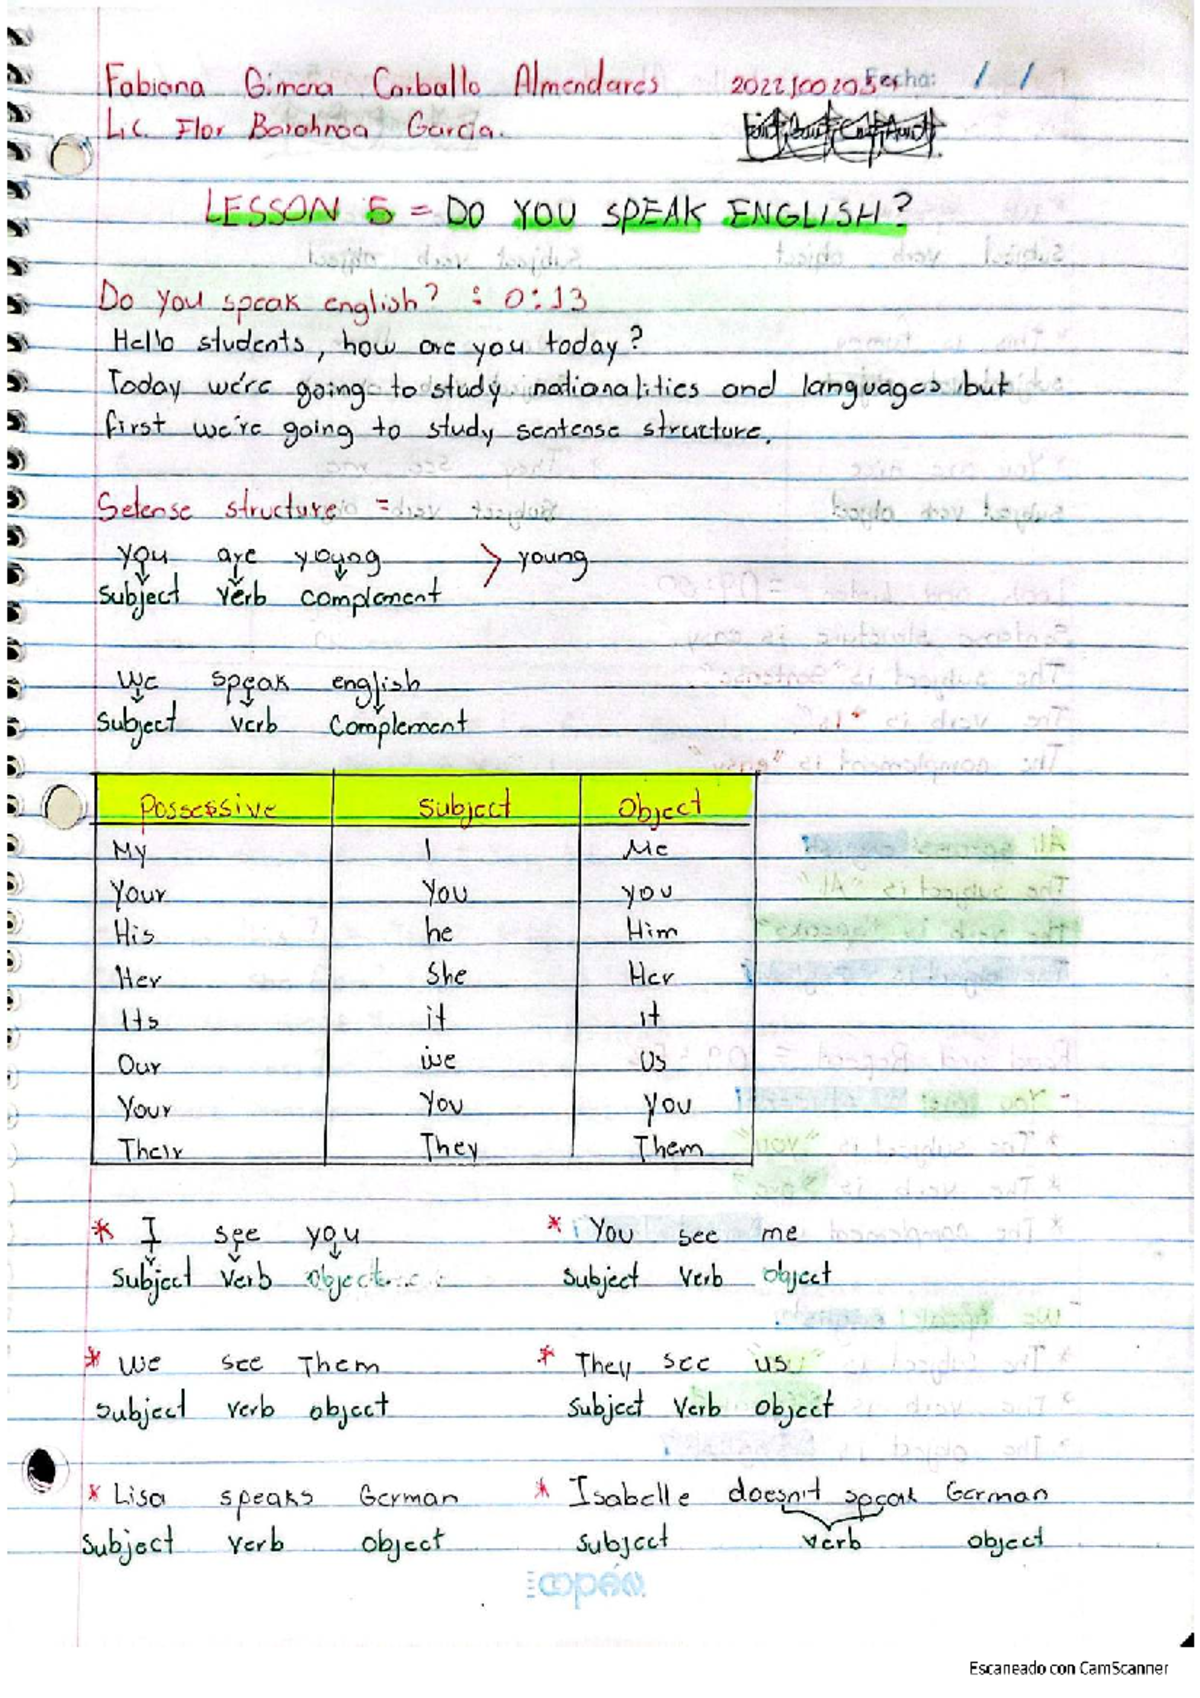 Fabiana Gimena Carballo Almendares 2022100203 Fecha: / /
Lic. Flor Barahnoa Garcia.
LESSON 5 = DO YOU SPEAK ENGLISH?
Do you speak english? : 0:13
Hello students, how are you today?
Today we're going to study nationalities and languages but
first we're going to study sentense structure.
Setense structure =
you are young > young
Subject verb complement
We speak english
Subject verb Complement
Possessive Subject Object
My I Me
Your You you
His he Him
Her She Her
Its it it
Our we Us
Your You you
Their They Them
* I see you * You see me
Subject Verb Object Subject Verb object
* We see Them * They see us
Subject verb object Subject Verb object
* Lisa speaks German * Isabelle doesn't speak German
Subject verb object Subject verb object
Escaneado con CamScanner